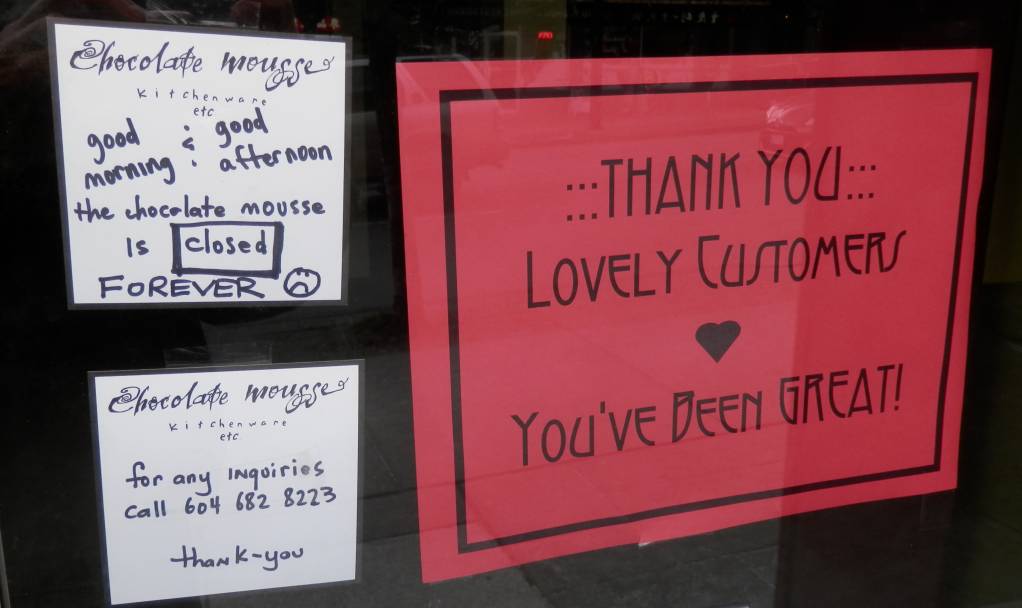 Chocolate mousse
kitchenware
etc
good & good
morning : afternoon
the chocolate mousse
is closed
FOREVER
Chocolate mousse
kitchenware
etc.
for any inquiries
call 604 682 8223
thank-you
:::THANK YOU:::
LOVELY CUSTOMERS
YOU'VE BEEN GREAT!